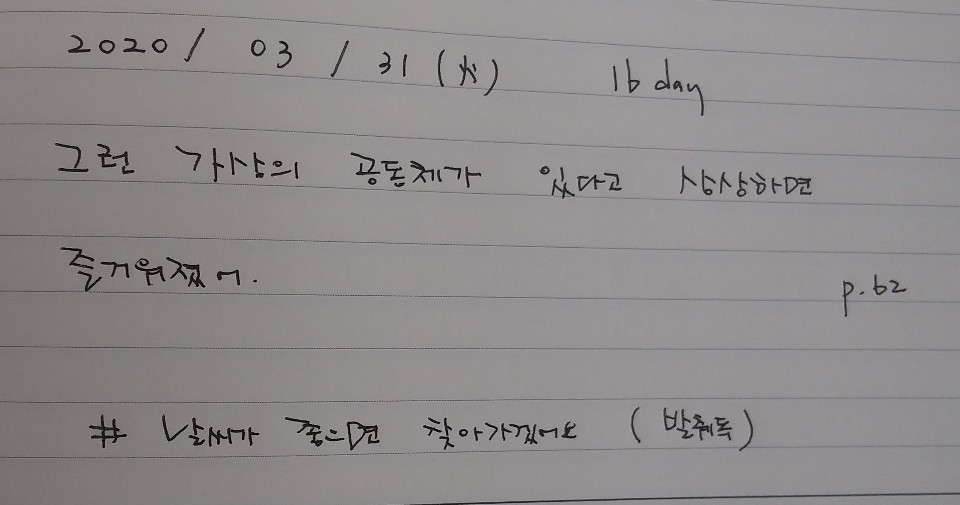 2020 / 03 / 31 (火) 16 day
그런 가상의 공동체가 있다고 상상하면
즐거워졌어. p.62
# 날씨가 좋으면 찾아가겠어요 (발췌독)